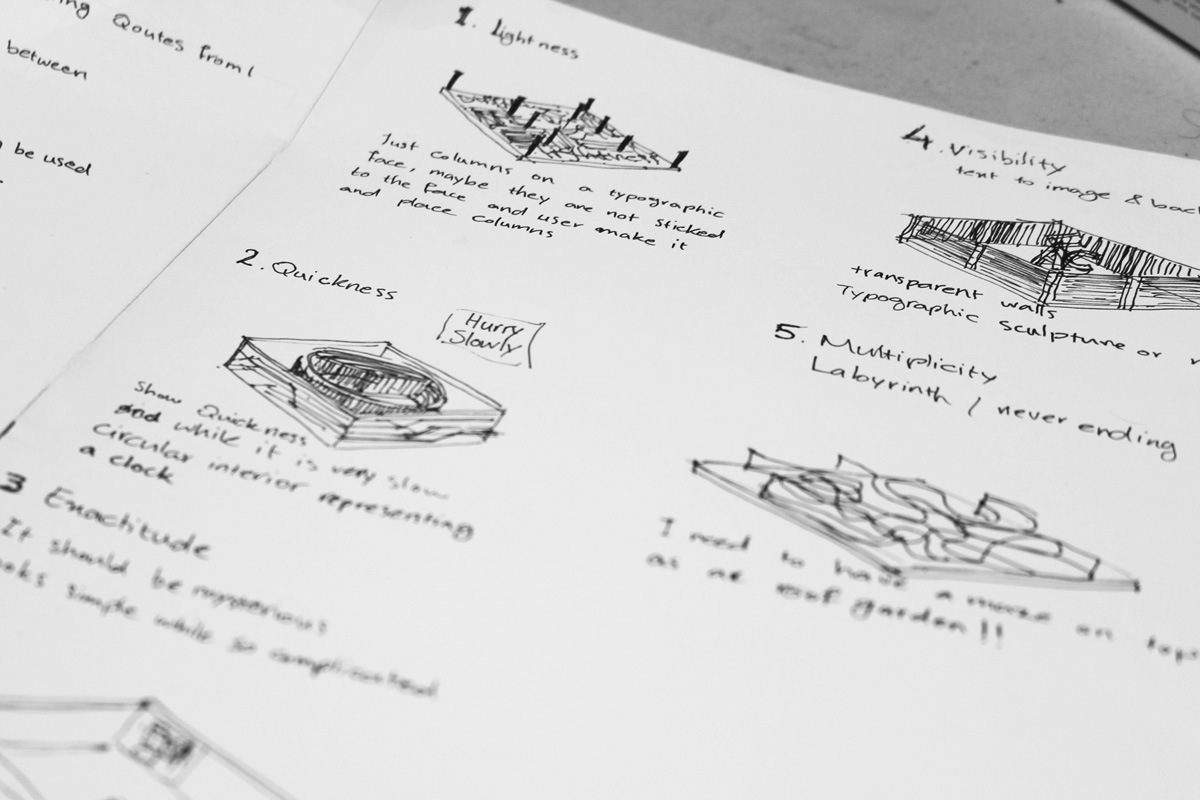 Qoutes from
between
be used
1. Lightness
Just columns on a typographic
face, maybe they are not sticked
to the face and user make it
and place columns
2. Quickness
Hurry
Slowly
show Quickness
and while it is very slow
circular interior representing
a clock
3 Exactitude
It should be mysterious
simple while so complicated
4. Visibility
text to image &
transparent walls
Typographic sculpture or
5. Multiplicity
Labyrinth / never ending
I need to have a maze on top
as roof garden !!